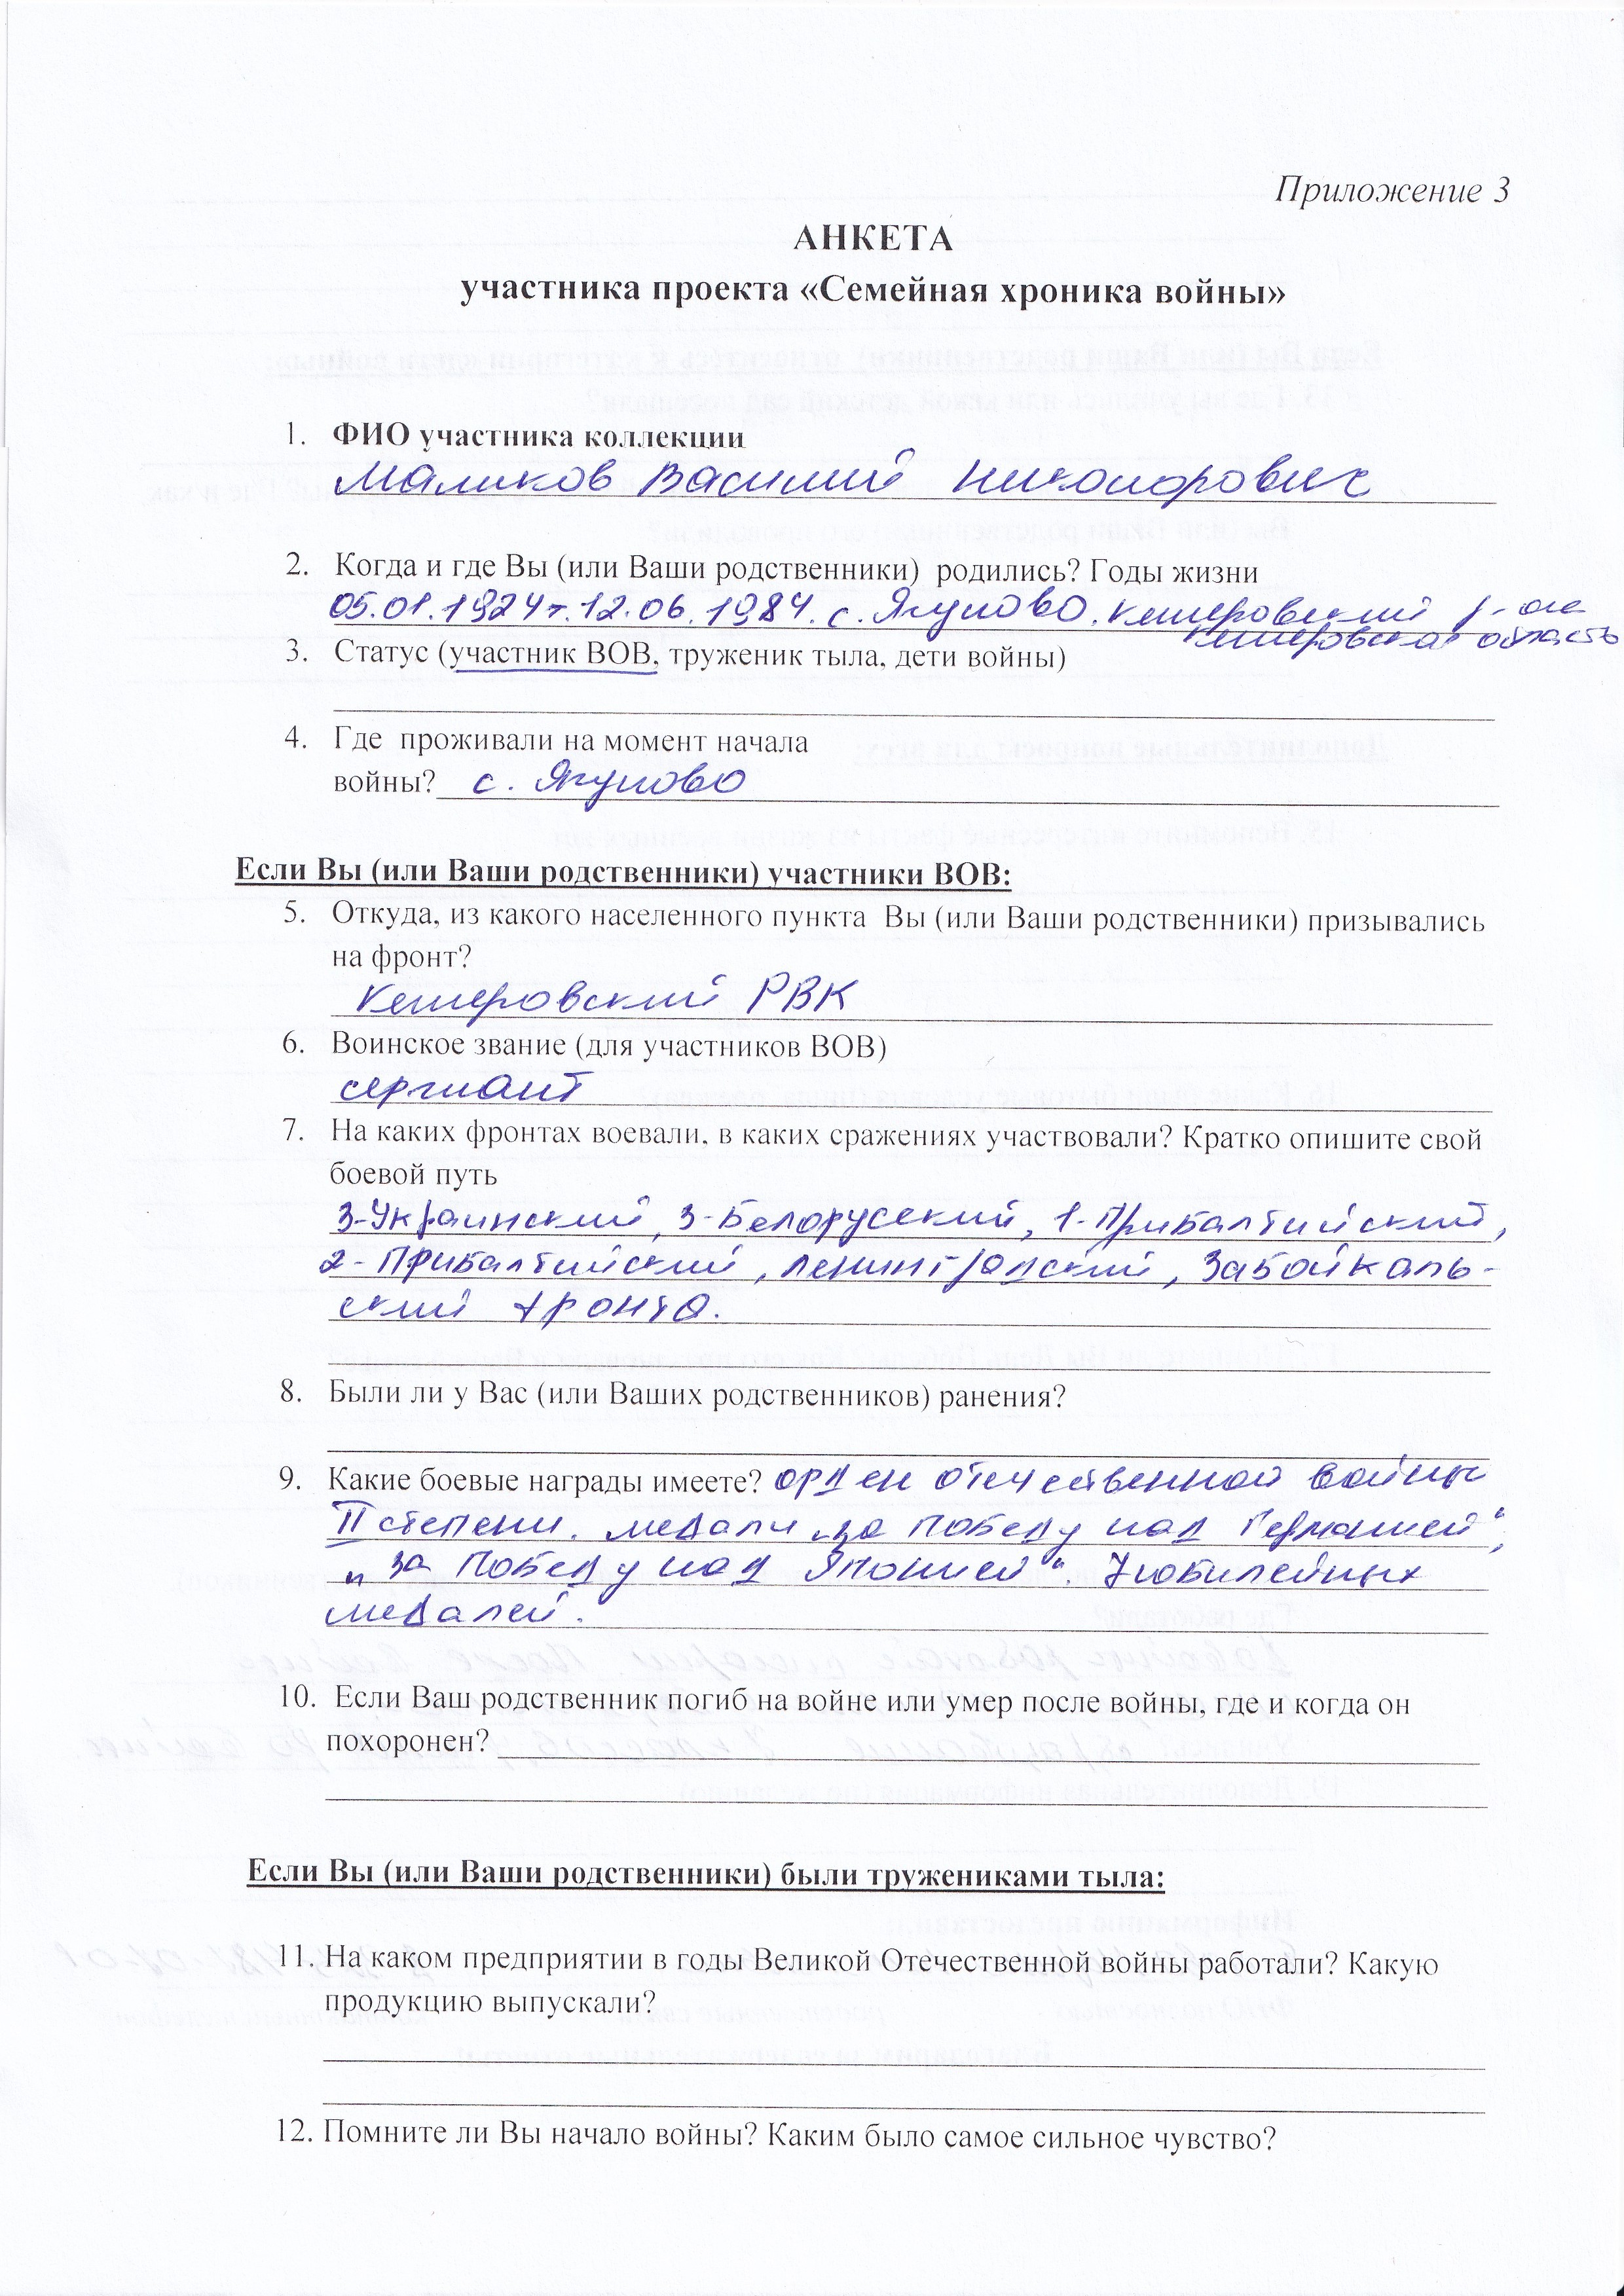 Приложение 3
АНКЕТА
участника проекта «Семейная хроника войны»
1. ФИО участника коллекции
Маликов Василий Никонорович
2. Когда и где Вы (или Ваши родственники) родились? Годы жизни
05.01.1924г. 12.06.1984. с. Ягуново. Кемеровский р-он
Кемеровская область
3. Статус (участник ВОВ, труженик тыла, дети войны)
4. Где проживали на момент начала
войны? с. Ягуново
Если Вы (или Ваши родственники) участники ВОВ:
5. Откуда, из какого населенного пункта Вы (или Ваши родственники) призывались
на фронт?
Кемеровский РВК
6. Воинское звание (для участников ВОВ)
сержант
7. На каких фронтах воевали, в каких сражениях участвовали? Кратко опишите свой
боевой путь
3-Украинский, 3-Белорусский, 1-Прибалтийский,
2-Прибалтийский, Ленинградский, Забайкаль-
ский фронта.
8. Были ли у Вас (или Ваших родственников) ранения?
9. Какие боевые награды имеете? орден отечественной войны
II степени. медали „за победу над Германией“,
„за Победу над Японией“. 7 юбилейных
медалей.
10. Если Ваш родственник погиб на войне или умер после войны, где и когда он
похоронен?
Если Вы (или Ваши родственники) были тружениками тыла:
11. На каком предприятии в годы Великой Отечественной войны работали? Какую
продукцию выпускали?
12. Помните ли Вы начало войны? Каким было самое сильное чувство?